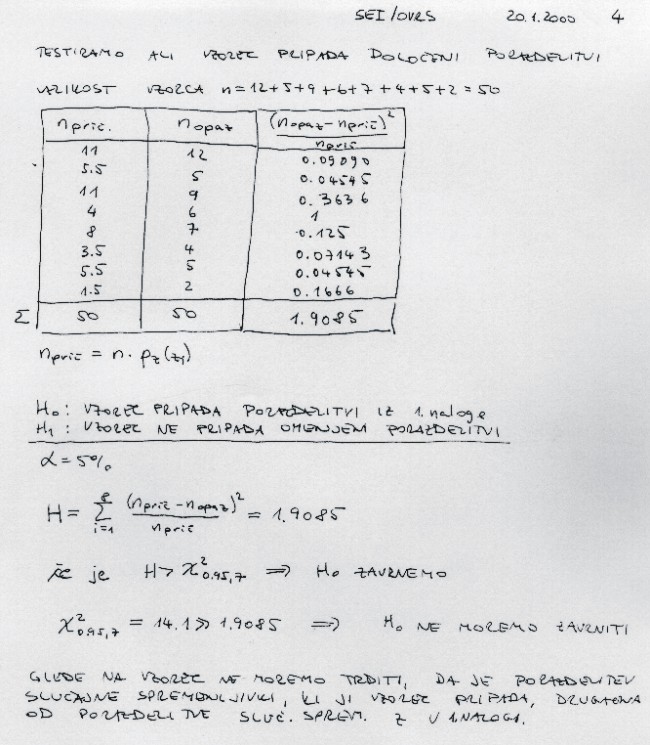 SEI/OVRS 20.1.2000 4
TESTIRAMO ALI VZOREC PRIPADA DOLOČENI PORAZDELITVI
VELIKOST VZORCA n=12+5+9+6+7+4+5+2=50
n prič. n opaz (n opaz - n prič)² / n prič
11 12 0.09090
5.5 5 0.04545
11 9 0.3636
4 6 1
8 7 0.125
3.5 4 0.07143
5.5 5 0.04545
1.5 2 0.1666
Σ 50 50 1.9085
n prič = n · p_z(z_i)
H₀: VZOREC PRIPADA PORAZDELITVI IZ 1. naloge
H₁: VZOREC NE PRIPADA OMENJENI PORAZDELITVI
α = 5%
H = Σ_{i=1}^{8} (n prič - n opaz)² / n prič = 1.9085
če je H > χ²_{0.95,7} ⇒ H₀ ZAVRNEMO
χ²_{0.95,7} = 14.1 ≫ 1.9085 ⇒ H₀ NE MOREMO ZAVRNITI
GLEDE NA VZOREC NE MOREMO TRDITI, DA JE PORAZDELITEV
SLUČAJNE SPREMENLJIVKE, KI JI VZOREC PRIPADA, DRUGAČNA
OD PORAZDELITVE SLUČ. SPREM. Z V 1. NALOGI.